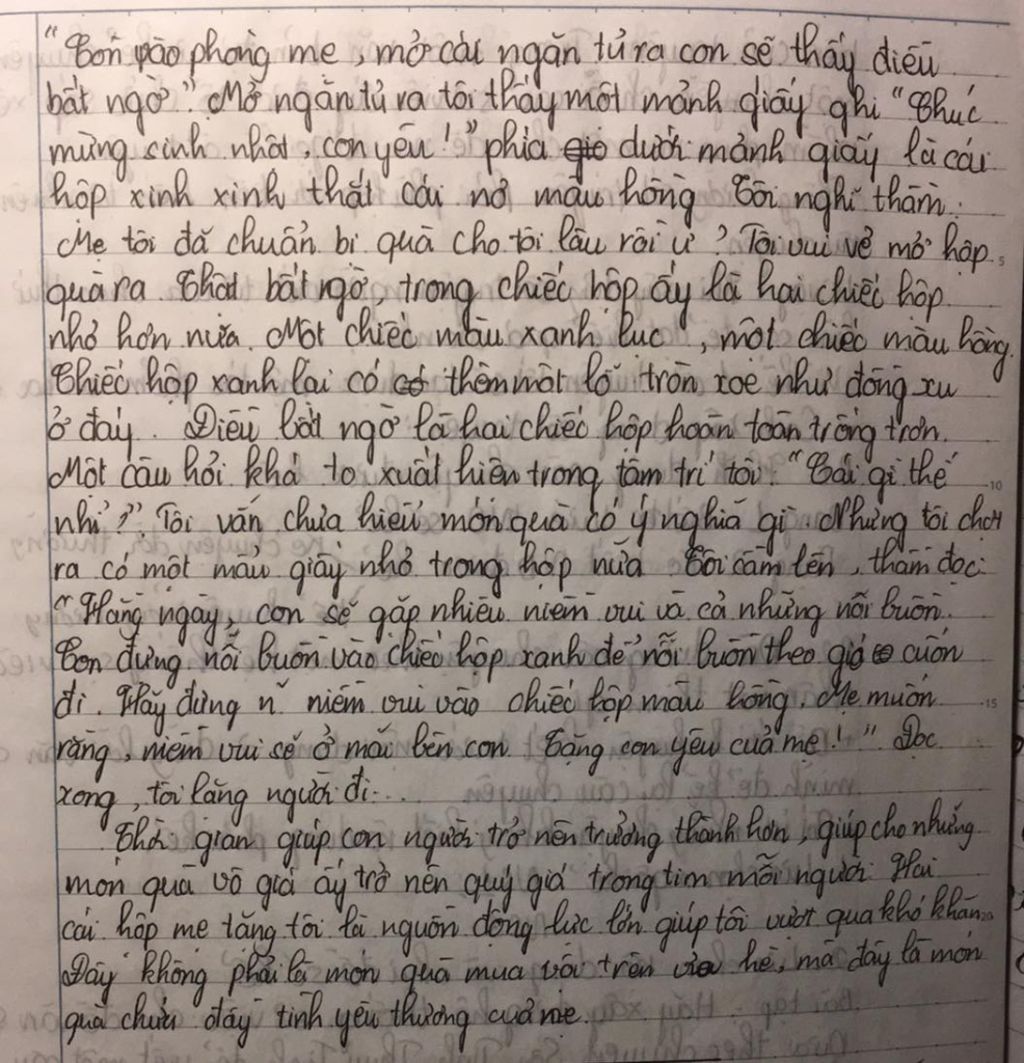 "Con vào phòng mẹ, mở cái ngăn tủ ra con sẽ thấy điều
bất ngờ". Mở ngăn tủ ra tôi thấy một mảnh giấy ghi "Chúc
mừng sinh nhật, con yêu!" phía dưới mảnh giấy là cái
hộp xinh xinh thắt cái nơ màu hồng. Tôi nghĩ thầm:
Mẹ tôi đã chuẩn bị quà cho tôi lâu rồi ư? Tôi vui vẻ mở hộp
quà ra. Thật bất ngờ, trong chiếc hộp ấy là hai chiếc hộp
nhỏ hơn nữa. Một chiếc màu xanh lục, một chiếc màu hồng.
Chiếc hộp xanh lại có thêm một lỗ tròn xoe như đồng xu
ở đáy. Điều bất ngờ là hai chiếc hộp hoàn toàn trống trơn.
Một câu hỏi khá to xuất hiện trong tâm trí tôi: "Cái gì thế
nhỉ?". Tôi vẫn chưa hiểu món quà có ý nghĩa gì. Nhưng tôi chợt
ra có một mẩu giấy nhỏ trong hộp nữa. Tôi cầm lên, thầm đọc:
"Hàng ngày, con sẽ gặp nhiều niềm vui và cả những nỗi buồn.
Con đựng nỗi buồn vào chiếc hộp xanh để nỗi buồn theo gió cuốn
đi. Hãy đựng niềm vui vào chiếc hộp màu hồng. Mẹ muốn
rằng, niềm vui sẽ ở mãi bên con. Tặng con yêu của mẹ!". Đọc
xong, tôi lặng người đi...
Thời gian giúp con người trở nên trưởng thành hơn, giúp cho những
món quà vô giá ấy trở nên quý giá trong tim mỗi người. Hai
cái hộp mẹ tặng tôi là nguồn động lực lớn giúp tôi vượt qua khó khăn.
Đây không phải là món quà mua vội trên vỉa hè, mà đây là món
quà chứa đầy tình yêu thương của mẹ.